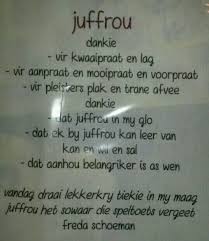 juffrou
dankie
- vir kwaaipraat en lag
- vir aanpraat en mooipraat en voorpraat
- vir pleisters plak en trane afvee
dankie
- dat juffrou in my glo
- dat ek by juffrou kan leer van
kan en wil en sal
- dat aanhou belangriker is as wen
vandag draai lekkerkry tiekie in my maag
juffrou het sowaar die speltoets vergeet
freda schoeman